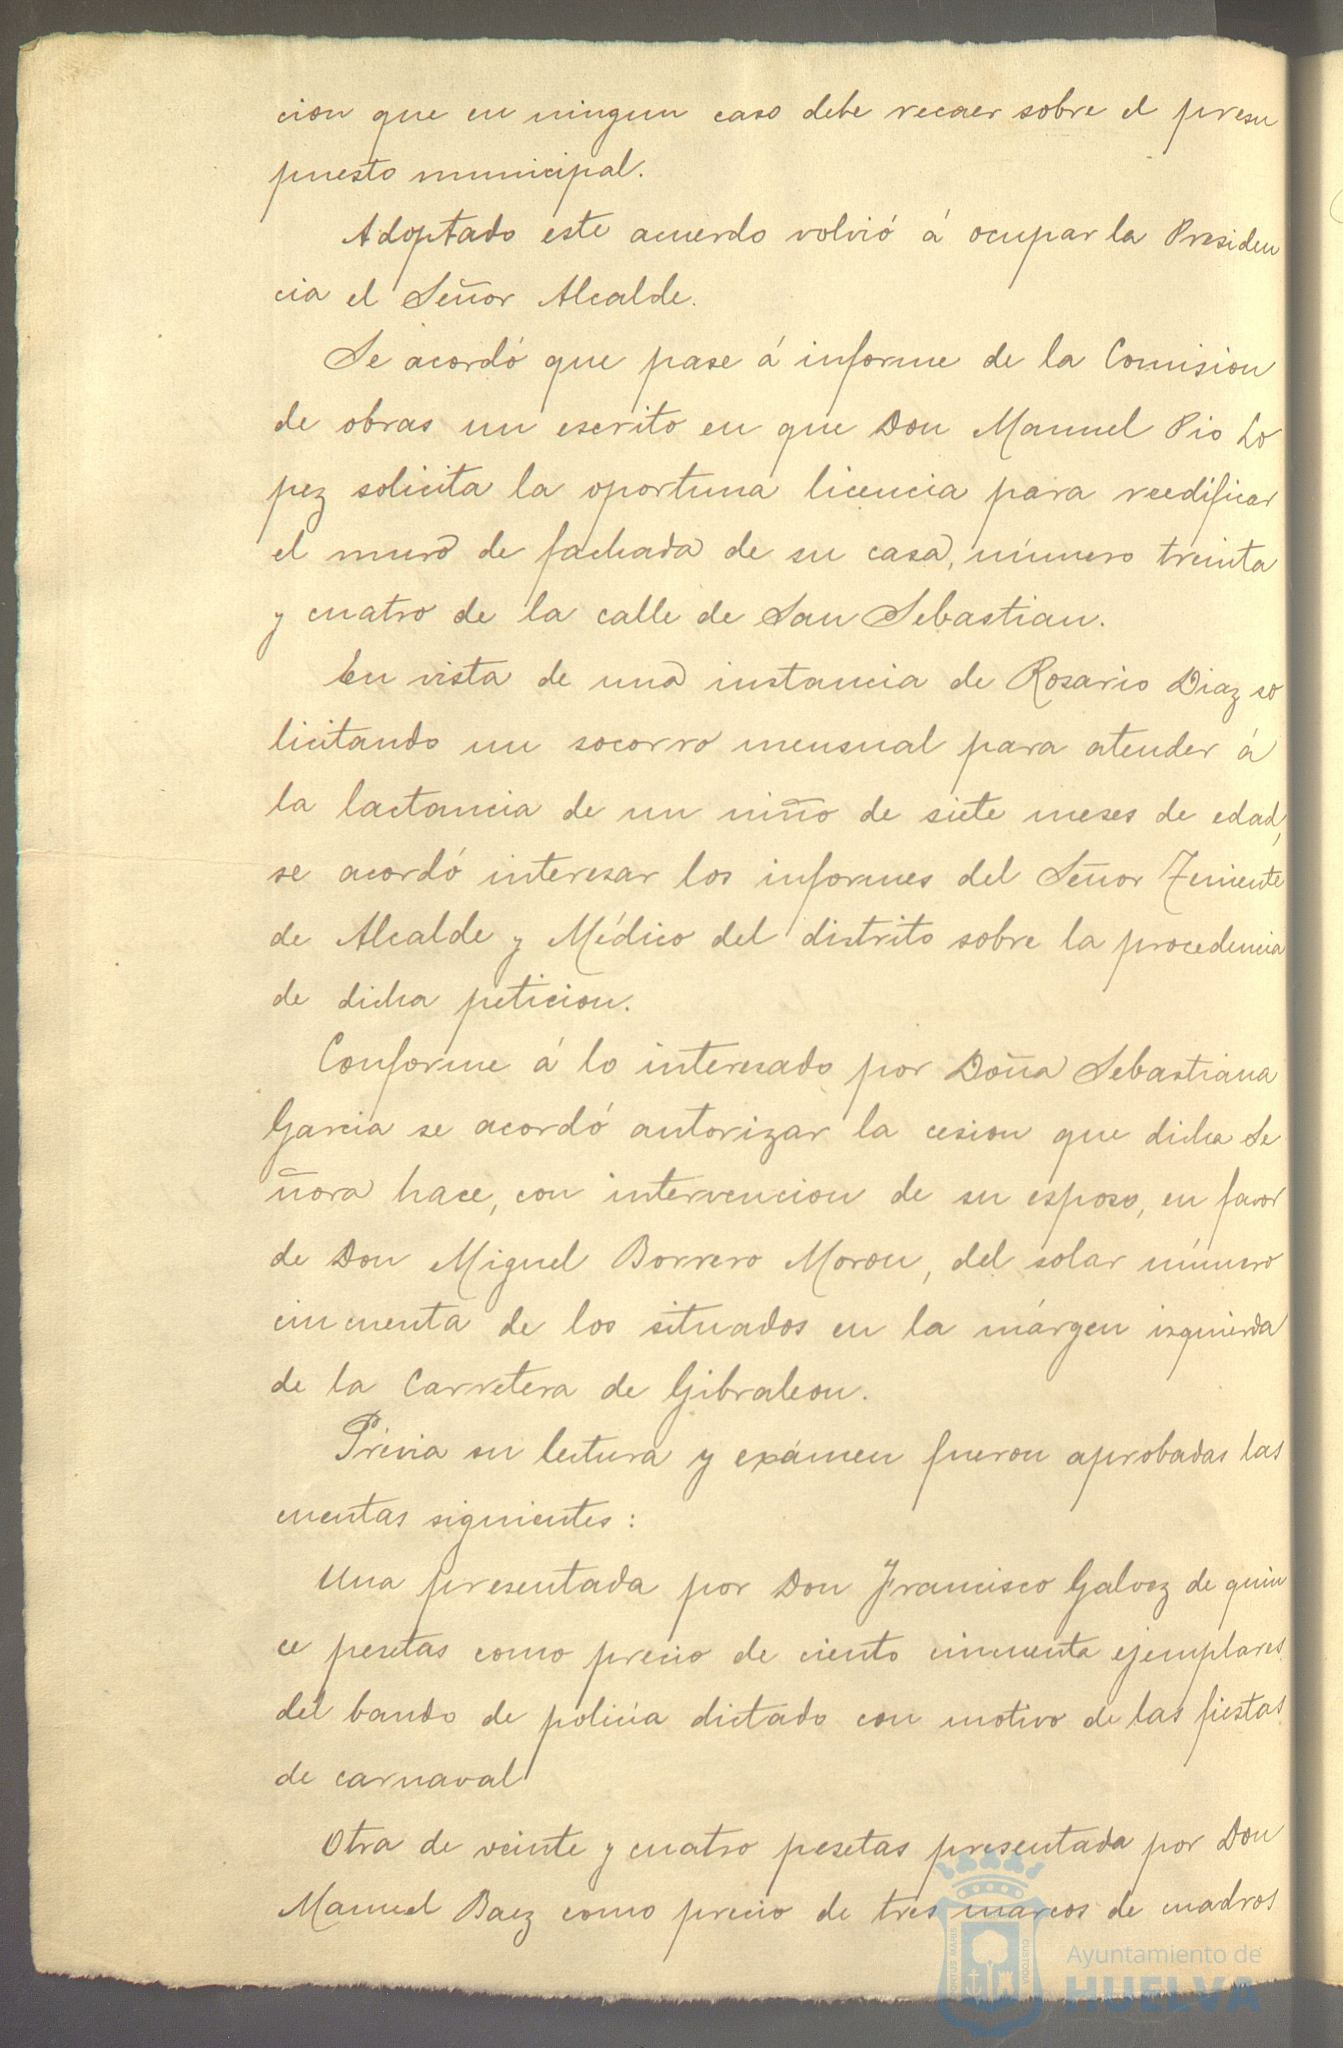 cion que en ningun caso debe recaer sobre el presu
puesto municipal.
Adoptado este acuerdo volvió á ocupar la Presiden
cia el Señor Alcalde.
Se acordó que pase á informe de la Comision
de obras un escrito en que Don Manuel Pio Lo
pez solicita la oportuna licencia para reedificar
el muro de fachada de su casa, número treinta
y cuatro de la calle de San Sebastian.
En vista de una instancia de Rosario Diaz so
licitando un socorro mensual para atender á
la lactancia de un niño de siete meses de edad,
se acordó interesar los informes del Señor Teniente
de Alcalde y Médico del distrito sobre la procedencia
de dicha peticion.
Conforme á lo interesado por Doña Sebastiana
Garcia se acordó autorizar la cesion que dicha Se
ñora hace, con intervencion de su esposo, en favor
de Don Miguel Borrero Moron, del solar número
cincuenta de los situados en la márgen izquierda
de la Carretera de Gibraleon.
Prévia su lectura y exámen fueron aprobadas las
cuentas siguientes:
Una presentada por Don Francisco Galvez de quin
ce pesetas como precio de ciento cincuenta ejemplares
del bando de policía dictado con motivo de las fiestas
de carnaval
Otra de veinte y cuatro pesetas presentada por Don
Manuel Baez como precio de tres marcos de cuadros
PORTUS MARIS CUSTODIA
Ayuntamiento de
HUELVA